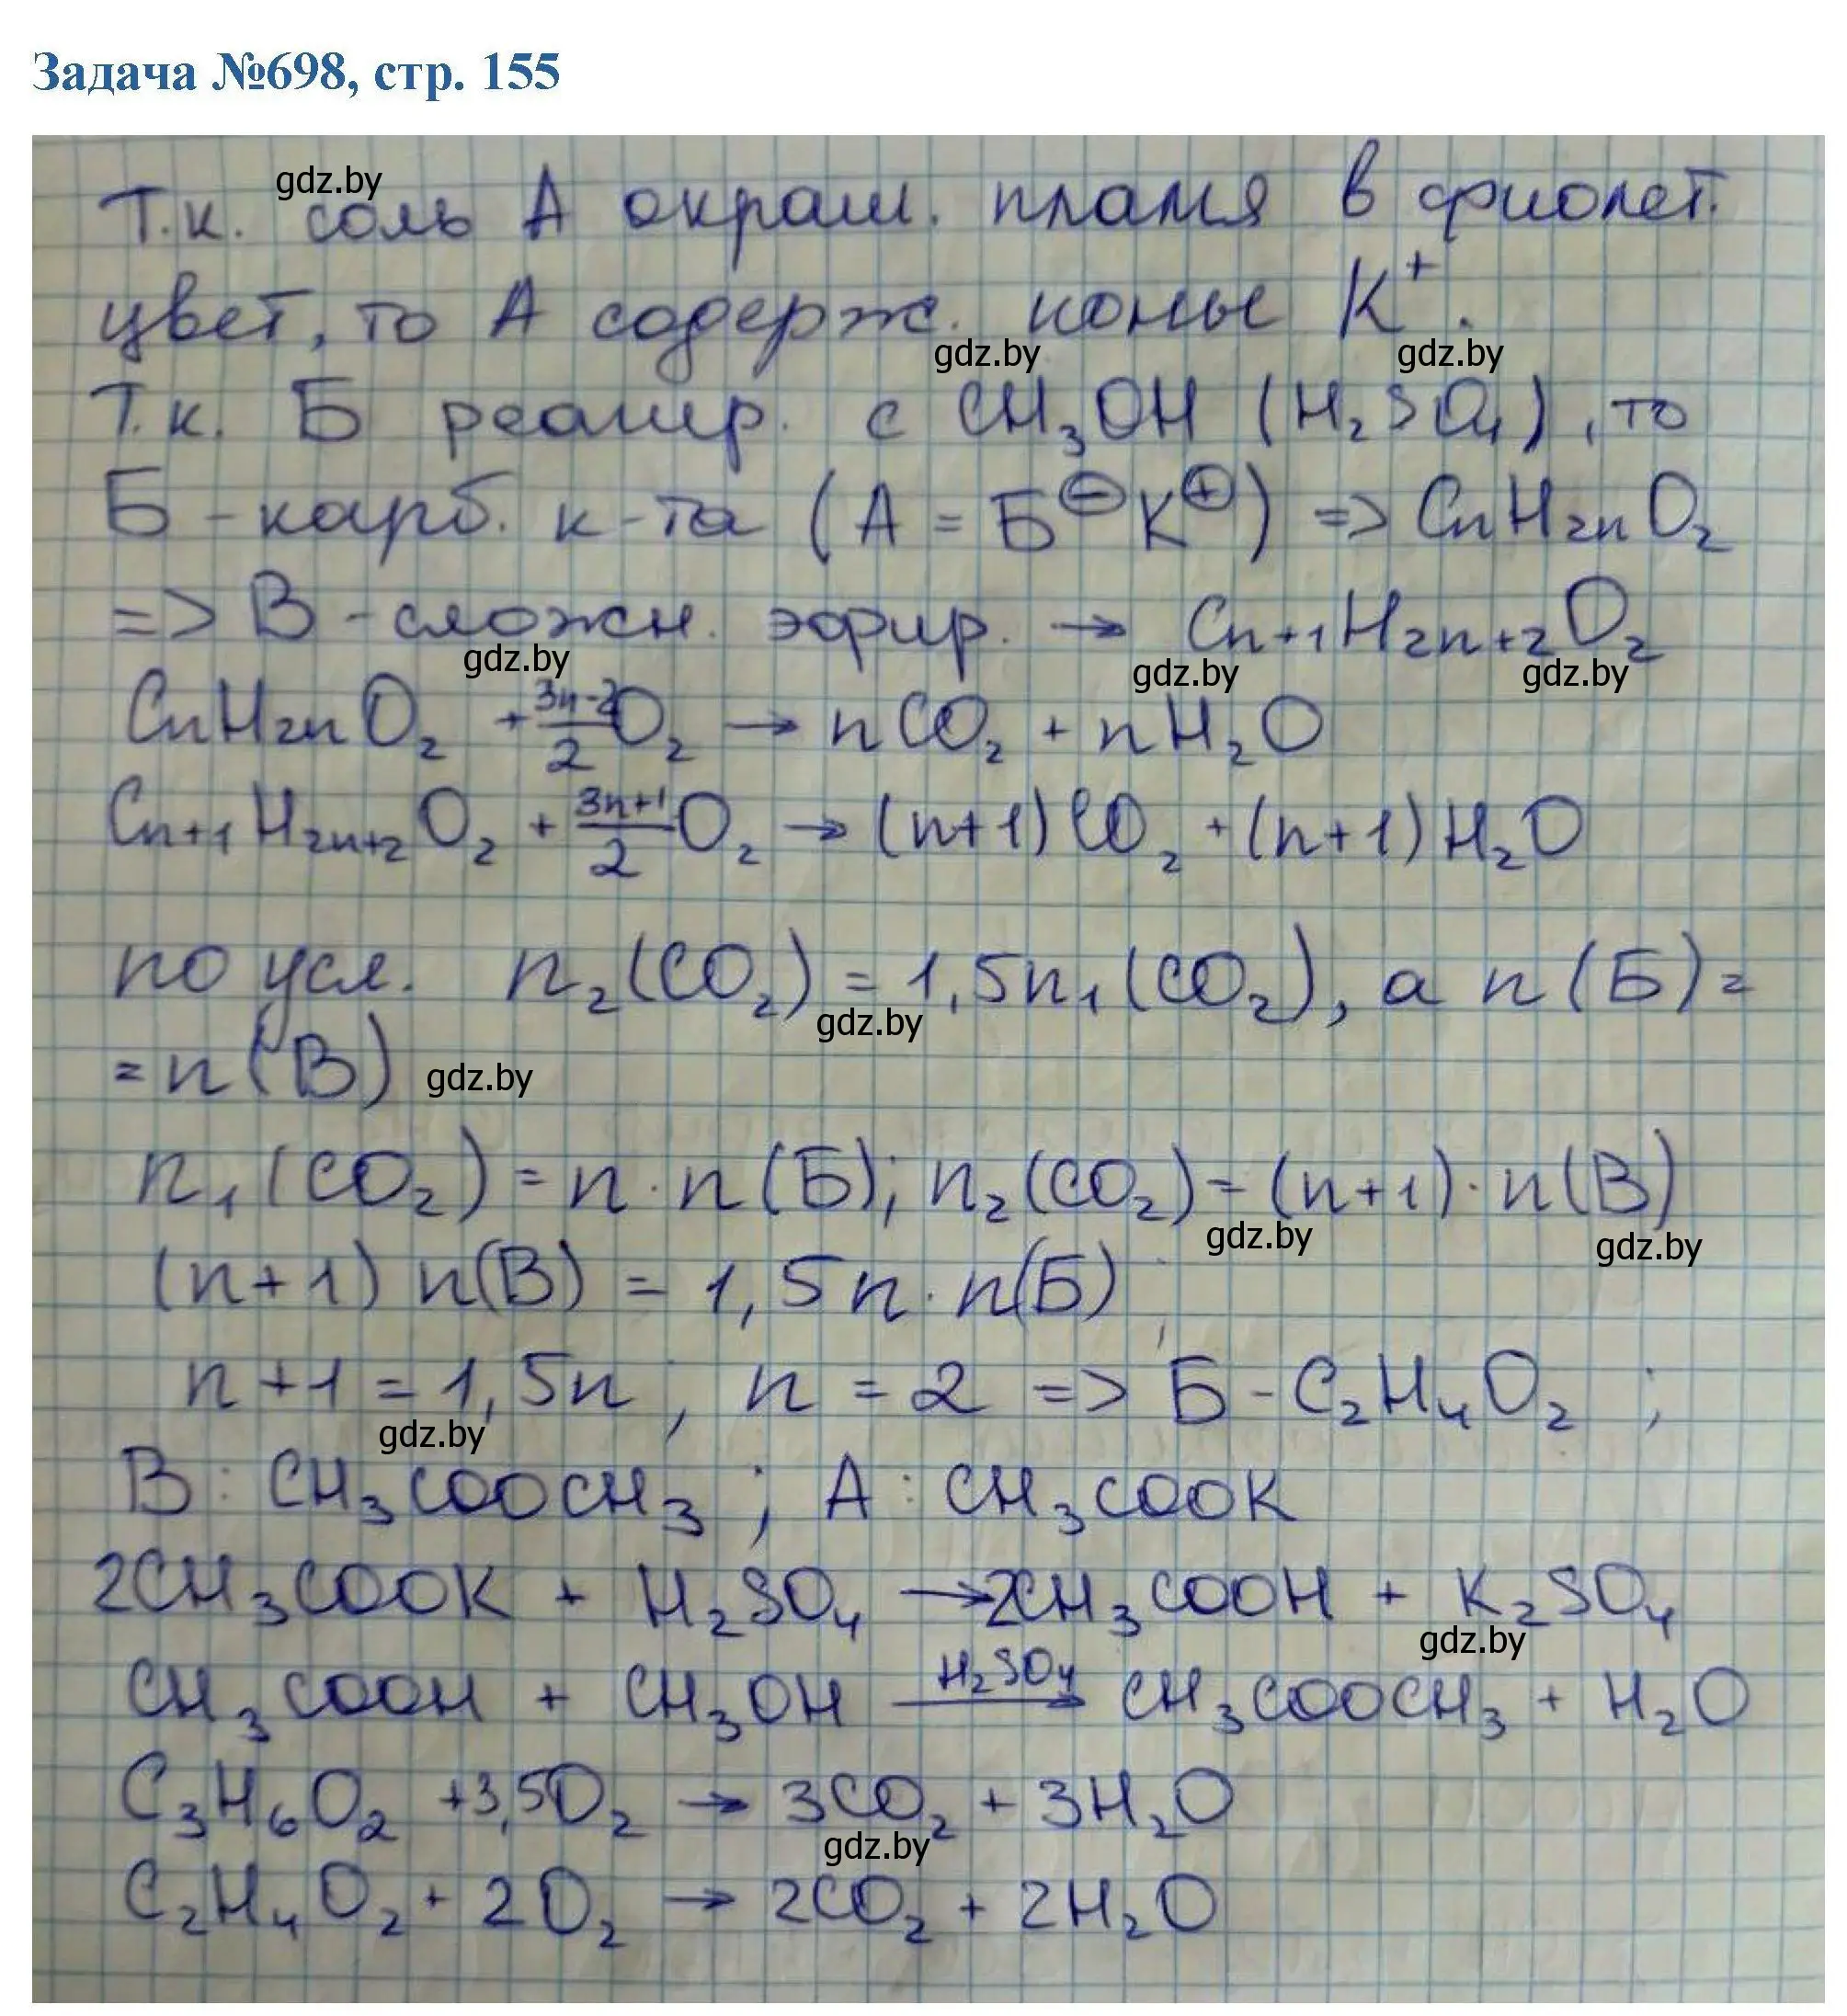 Задача №698, стр. 155
gdz.by
Т.к. соль А окраш. пламя в фиолет.
цвет, то А содерж. ионы K⁺.
gdz.by gdz.by
Т.к. Б реагир. с CH₃OH (H₂SO₄), то
Б - карб. к-та (А = Б⊖K⊕) => CnH₂nO₂
=> В - сложн. эфир. → Cn+1H2n+2O₂
gdz.by gdz.by gdz.by
CnH₂nO₂ + (3n-2)/2 O₂ → nCO₂ + nH₂O
Cn+1H2n+2O₂ + (3n+1)/2 O₂ → (n+1)CO₂ + (n+1)H₂O
по усл. n₂(CO₂) = 1,5n₁(CO₂), а n(Б) =
gdz.by
= n(В) gdz.by
n₁(CO₂) = n · n(Б); n₂(CO₂) = (n+1) · n(В)
gdz.by gdz.by
(n+1) n(В) = 1,5n · n(Б)
n+1 = 1,5n; n = 2 => Б - C₂H₄O₂ ;
gdz.by
В : CH₃COOCH₃ ; А : CH₃COOK
2CH₃COOK + H₂SO₄ → 2CH₃COOH + K₂SO₄
gdz.by
CH₃COOH + CH₃OH —H₂SO₄→ CH₃COOCH₃ + H₂O
C₃H₆O₂ + 3,5O₂ → 3CO₂ + 3H₂O
gdz.by
C₂H₄O₂ + 2O₂ → 2CO₂ + 2H₂O